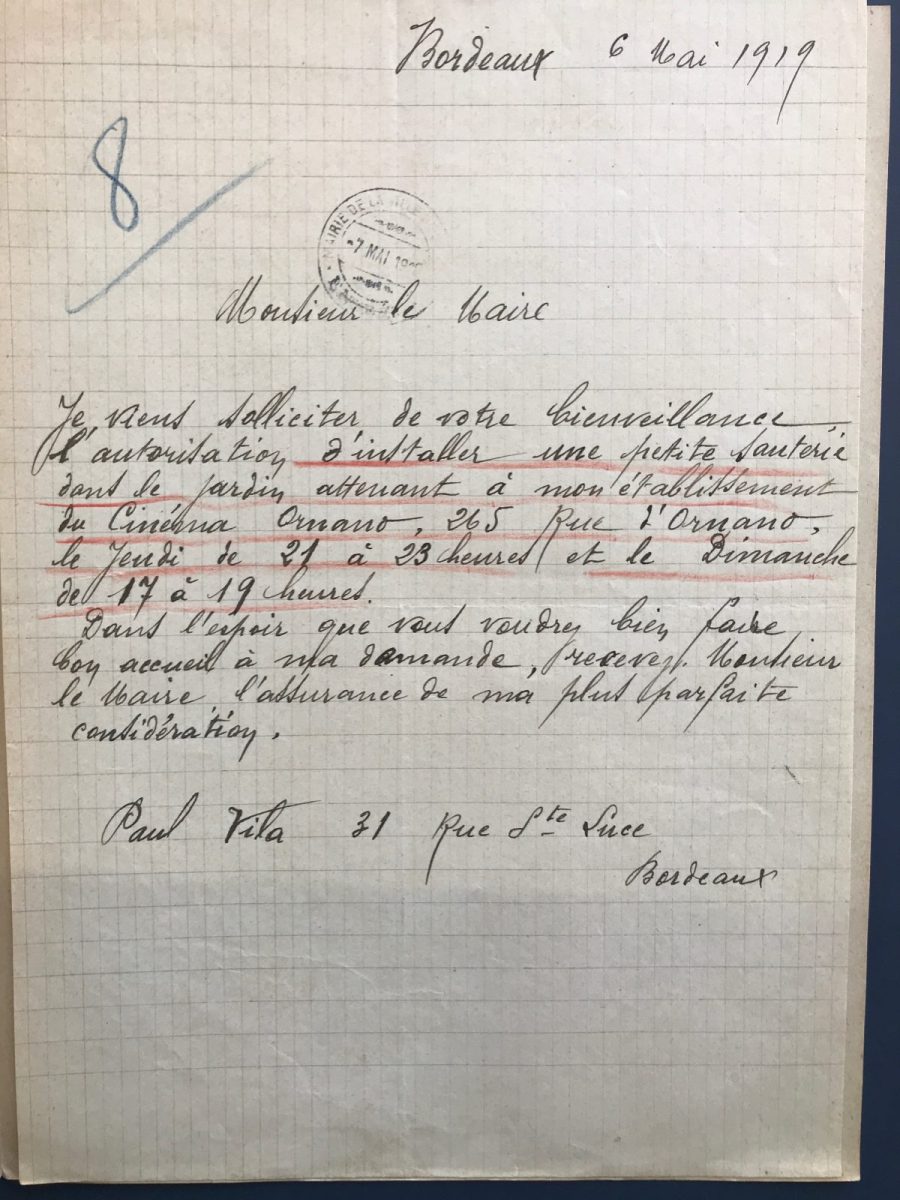 Bordeaux 6 Mai 1919
8
MAIRIE DE LA VILLE
-7 MAI
Monsieur le Maire
Je viens solliciter de votre bienveillance
l'autorisation d'installer une petite sauterie
dans le jardin attenant à mon établissement
du Cinéma Ornano, 265 Rue d'Ornano,
le Jeudi de 21 à 23 heures et le Dimanche
de 17 à 19 heures.
Dans l'espoir que vous voudrez bien faire
bon accueil à ma demande, recevez. Monsieur
le Maire, l'assurance de ma plus parfaite
considération.
Paul Vila 31 Rue Ste Luce
Bordeaux